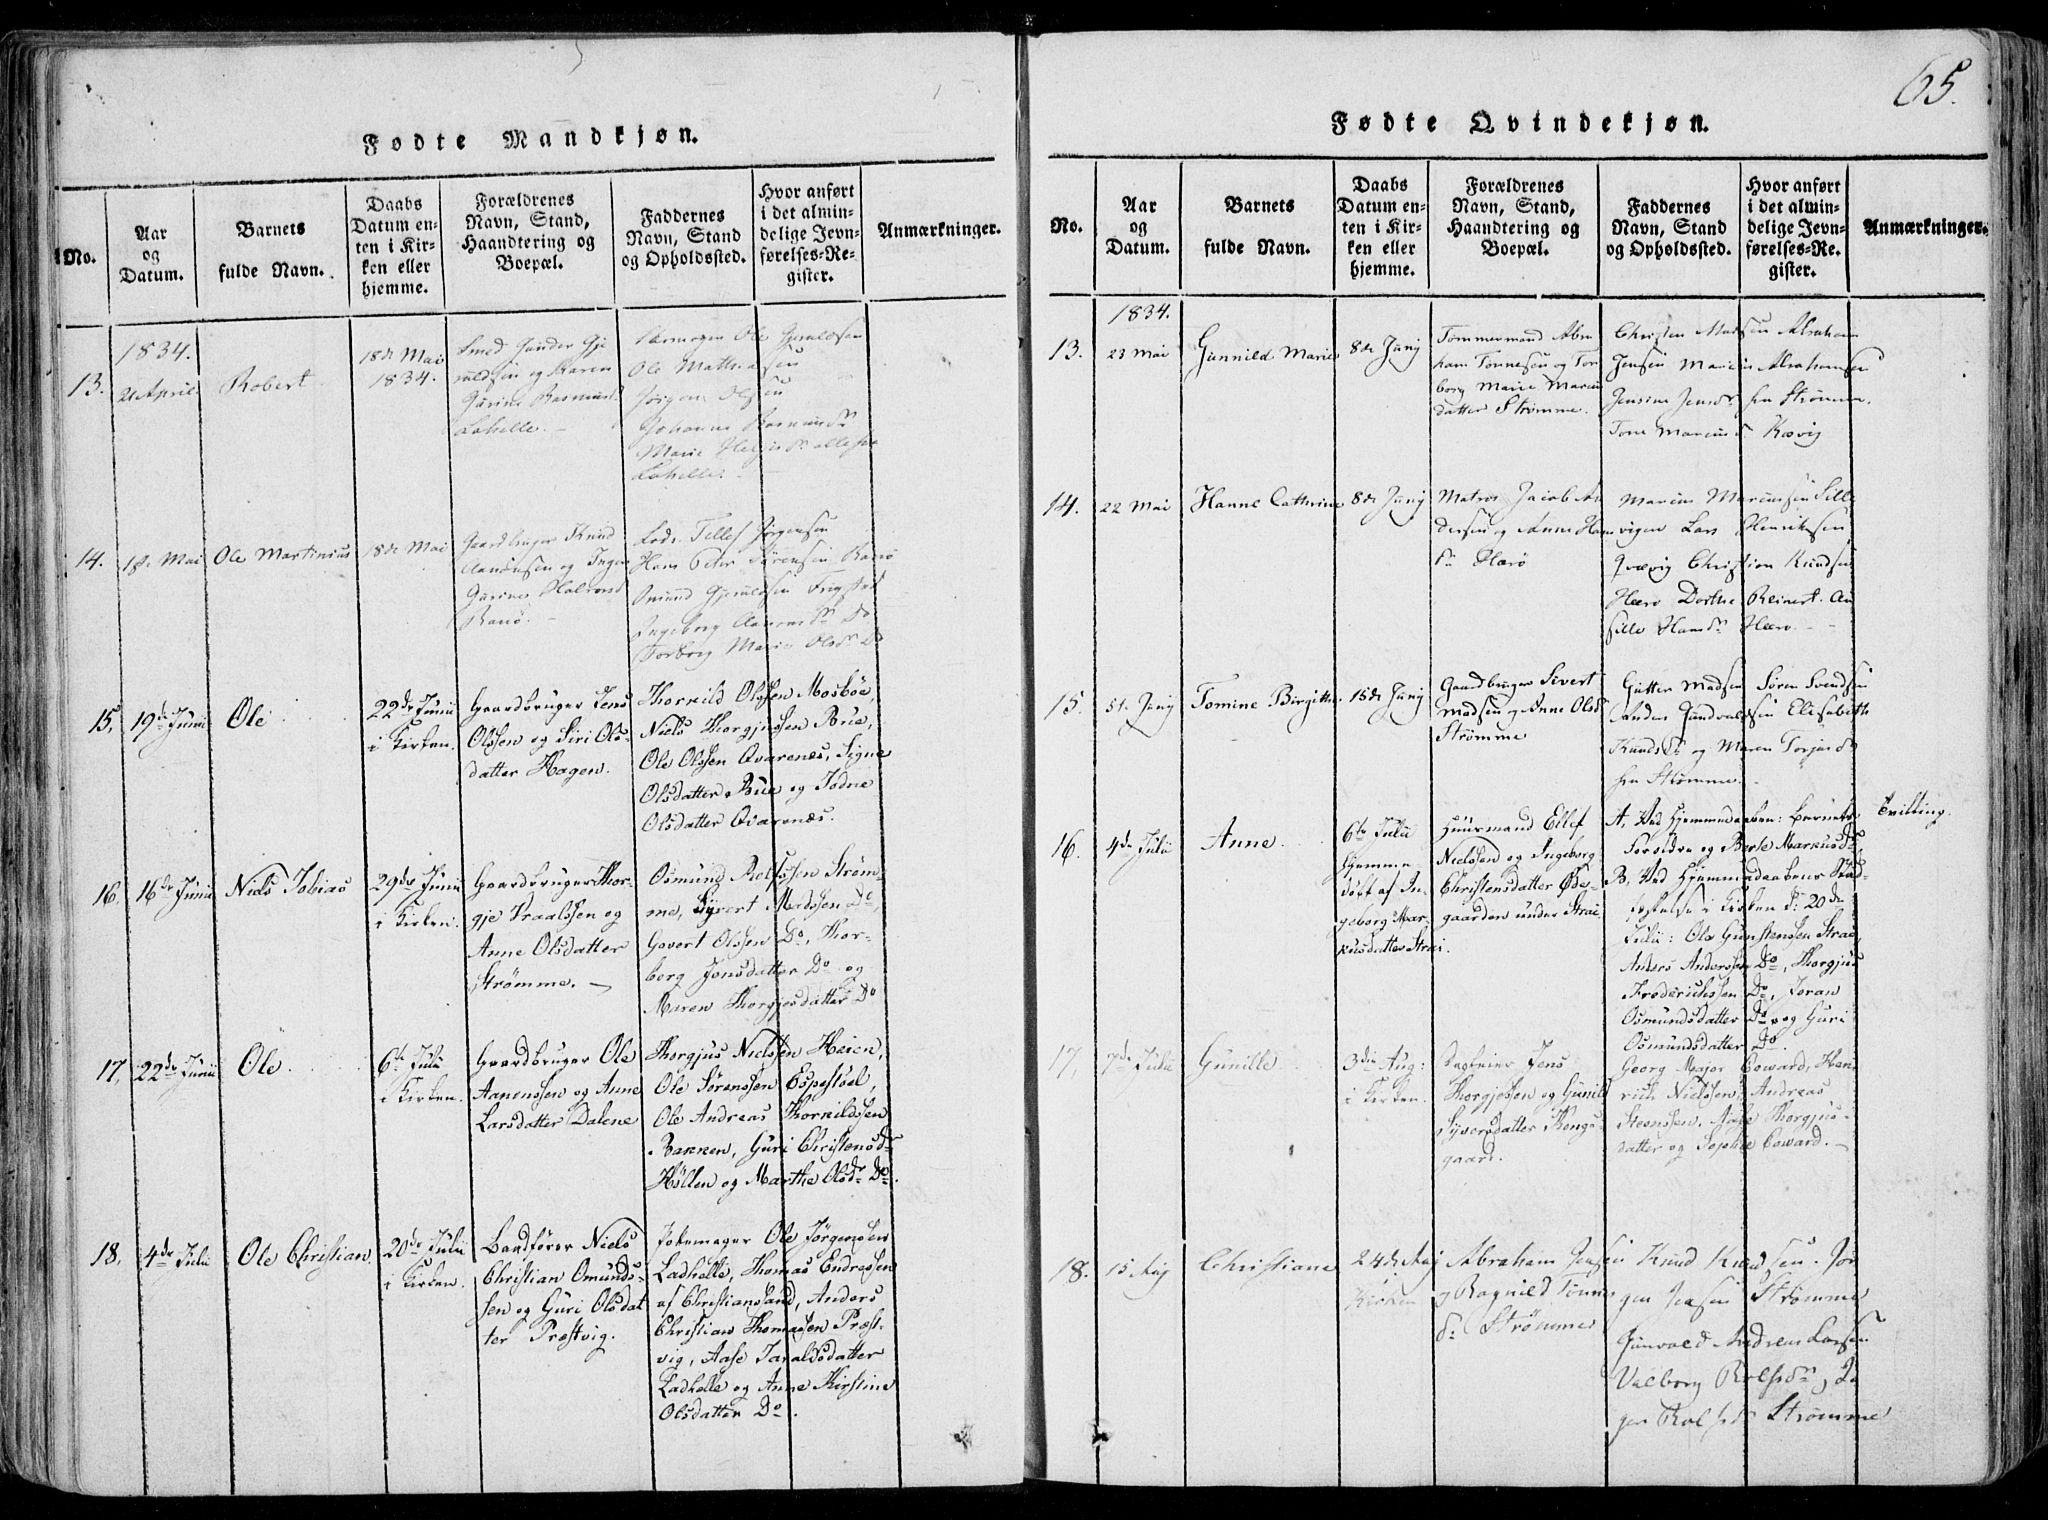 65.
Fødte Mandkjøn.
No.
Aar
og
Datum.
Barnets
fulde Navn.
Daabs
Datum en-
ten i Kir-
ken eller
hjemme.
Forældrenes
Navn, Stand,
Haandtering og
Boepæl.
Faddernes
Navn, Stand
og Opholdssted.
Hvor anført
i det almin-
delige Jevn-
førelses-Re-
gister.
Anmærkninger.
1834.
13.
21 April
Robert
18de Mai
1834.
Smed Gunder Gje
ruldsen og Karen
Gurine Rasmusd
Lahelle.
Ole Gjeruldsen
Ole Mathiasen
Jørgen Olsen
Johanne
Marie
Lahelle.
14.
18. Mai
Ole Martinius
18de Mai
Gaardbruger Knud
Aanonsen og Inger
Gurine Halvorsd
Randø.
Lods Tellef Jørgensen
Hans Peter Sørensen Randø
Gjeruldsen
Ingeborg Aanonsdr Do
Torborg Marie Olsdr Do
15.
19de Junii
Ole
22de Junii
i Kirken.
Gaardbruger Jens
Olssen og Siri Ols-
datter Hagen.
Thorkild Olssen Mosbøe,
Niels Thorgjussen Bue,
Ole Olssen Qvarenes, Signe
Olsdatter Bue og Jødne
Olsdatter Qvarenes.
16.
16de Junii
Niels Tobias
29de Junii
i Kirken.
Gaardbruger Thor-
gje Traalssen og
Anne Olsdatter
Strømme.
Osmund Rolfssen Strøm-
me, Syvert Madssen Do,
Govert Olssen Do, Thor-
berg Jensdatter Do og
Maren Thorgjesdatter Do
17.
22de Junii
Ole
6te Julii
i Kirken.
Gaardbruger Ole
Aanenssen og Anne
Larsdatter Dalene
Thorgjus Nielssen Heien,
Ole Sørenssen Espestøel,
Ole Andreas Thorkildssen
Bakken, Guri Christensdr
Høllen og Marthe Olsdr Do.
18.
4de Julii
Ole Christian
20de Julii
i Kirken.
Landfører Niels
Christian Omunds-
sen og Guri Olsdat
ter Præstvig.
Ole Jørgenssen
Ladhelle, Thomas Endressen
af Christianssand, Anders
Christian Thomassen Præst-
vig, Aase Taraldsdatter
Ladhelle og Anne Kirstine
Olsdatter Do.
Fødte Qvindekjøn.
No.
Aar
og
Datum.
Barnets
fulde Navn.
Daabs
Datum en-
ten i Kir-
ken eller
hjemme.
Forældrenes
Navn, Stand,
Haandtering og
Boepæl.
Faddernes
Navn, Stand
og Opholdssted.
Hvor anført
i det almin-
delige Jevn-
førelses-Re-
gister.
Anmærkninger.
1834.
13.
23 Mai
Gunnild Marie
8de Junij
Tømmermand Abra
ham Tønnesen og Tor
borg Marie Marcus
datter Strømme.
Christen Madsen Abraham
Jensen Marcus Abrahamsen
Jensine Jensdr fra Strømme.
Tone Marcusdr Kovig
14.
22 Mai
Hanne Cathrine
8de Junij
Matros Jacob An
dersen og Anne Hans
dr Herø
Marcus Marcussen Sille
vigen Lars Henriksen
Christian Knudsen
Herø Dorthe Reinert.
Sille Hansdr Herø.
15.
5te Junij
Tomine Birgitte
15de Junij
Gaardbruger Sivert
Madsen og Anne Olsdr
Strømme
Gutter Madsen Søren Svendsen
Anders Gundvaldsen Elisabeth
Knudsdr og Maren Torjusdr
fra Strømme.
16.
4de Julii
Anne
6te Julii
hjemme
døbt af In-
geborg Mar-
kusdatter Strai.
Huusmand Ellef
Nielssen og Ingeborg
Christensdatter Øde-
gaarden under Strai.
A, Ved Hjemmedaaben: Barnets
Forældre og Berte Markusdr,
B, Ved Hjemmedaabens Stad-
fæstelse i Kirken d: 20de
Julii: Ole Gunstenssen Strai,
Anders Anderssen Do, Thorgjus
Frederichssen Do, Joran
Osmundsdatter Do og Guri
Osmundsdatter Do.
Tvilling.
17.
7de Julii
Gunille
3die Aug:
i Kirken.
Jens
Thorgjessen og Gunild
Syversdatter Kongs-
gaard.
Georg Major Coward, Hen
rich Nielssen, Andreas
Steenssen, Aase Thorgjus-
datter og Sophie Coward.
18.
15 Aug
Christiane
24de Aug
i
Kirken
Abraham Jensen
og Ragnild Tønnes
dr Strømme
Knud Knudsen. Jør
gen Jensen Strømme
Gunvald Andreas Larsen
Valborg Rolfsdr, In
ger Rolfsdr Strømme